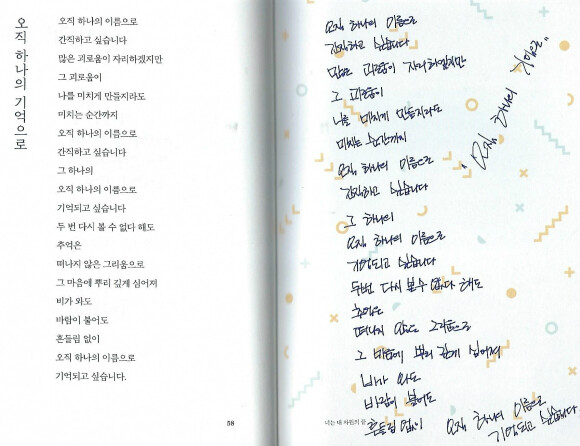 오직 하나의 기억으로
오직 하나의 이름으로
간직하고 싶습니다
많은 괴로움이 자리하겠지만
그 괴로움이
나를 미치게 만들지라도
미치는 순간까지
오직 하나의 이름으로
간직하고 싶습니다
그 하나의
오직 하나의 이름으로
기억되고 싶습니다
두 번 다시 볼 수 없다 해도
추억은
떠나지 않은 그리움으로
그 마음에 뿌리 깊게 심어져
비가 와도
바람이 불어도
흔들림 없이
오직 하나의 이름으로
기억되고 싶습니다.
58
오직 하나의 이름으로
간직하고 싶습니다
많은 괴로움이 자리하겠지만
그 괴로움이
나를 미치게 만들지라도
미치는 순간까지
오직 하나의 이름으로
간직하고 싶습니다
그 하나의
오직 하나의 이름으로
기억되고 싶습니다
두번 다시 볼수 없다 해도
추억은
떠나지 않은 그리움으로
그 마음에 뿌리 깊게 심어져
비가 와도
바람이 불어도
흔들림 없이
오직 하나의 이름으로
기억되고 싶습니다
"오직 하나의 기억으로"
너는 내 차원의 꿈